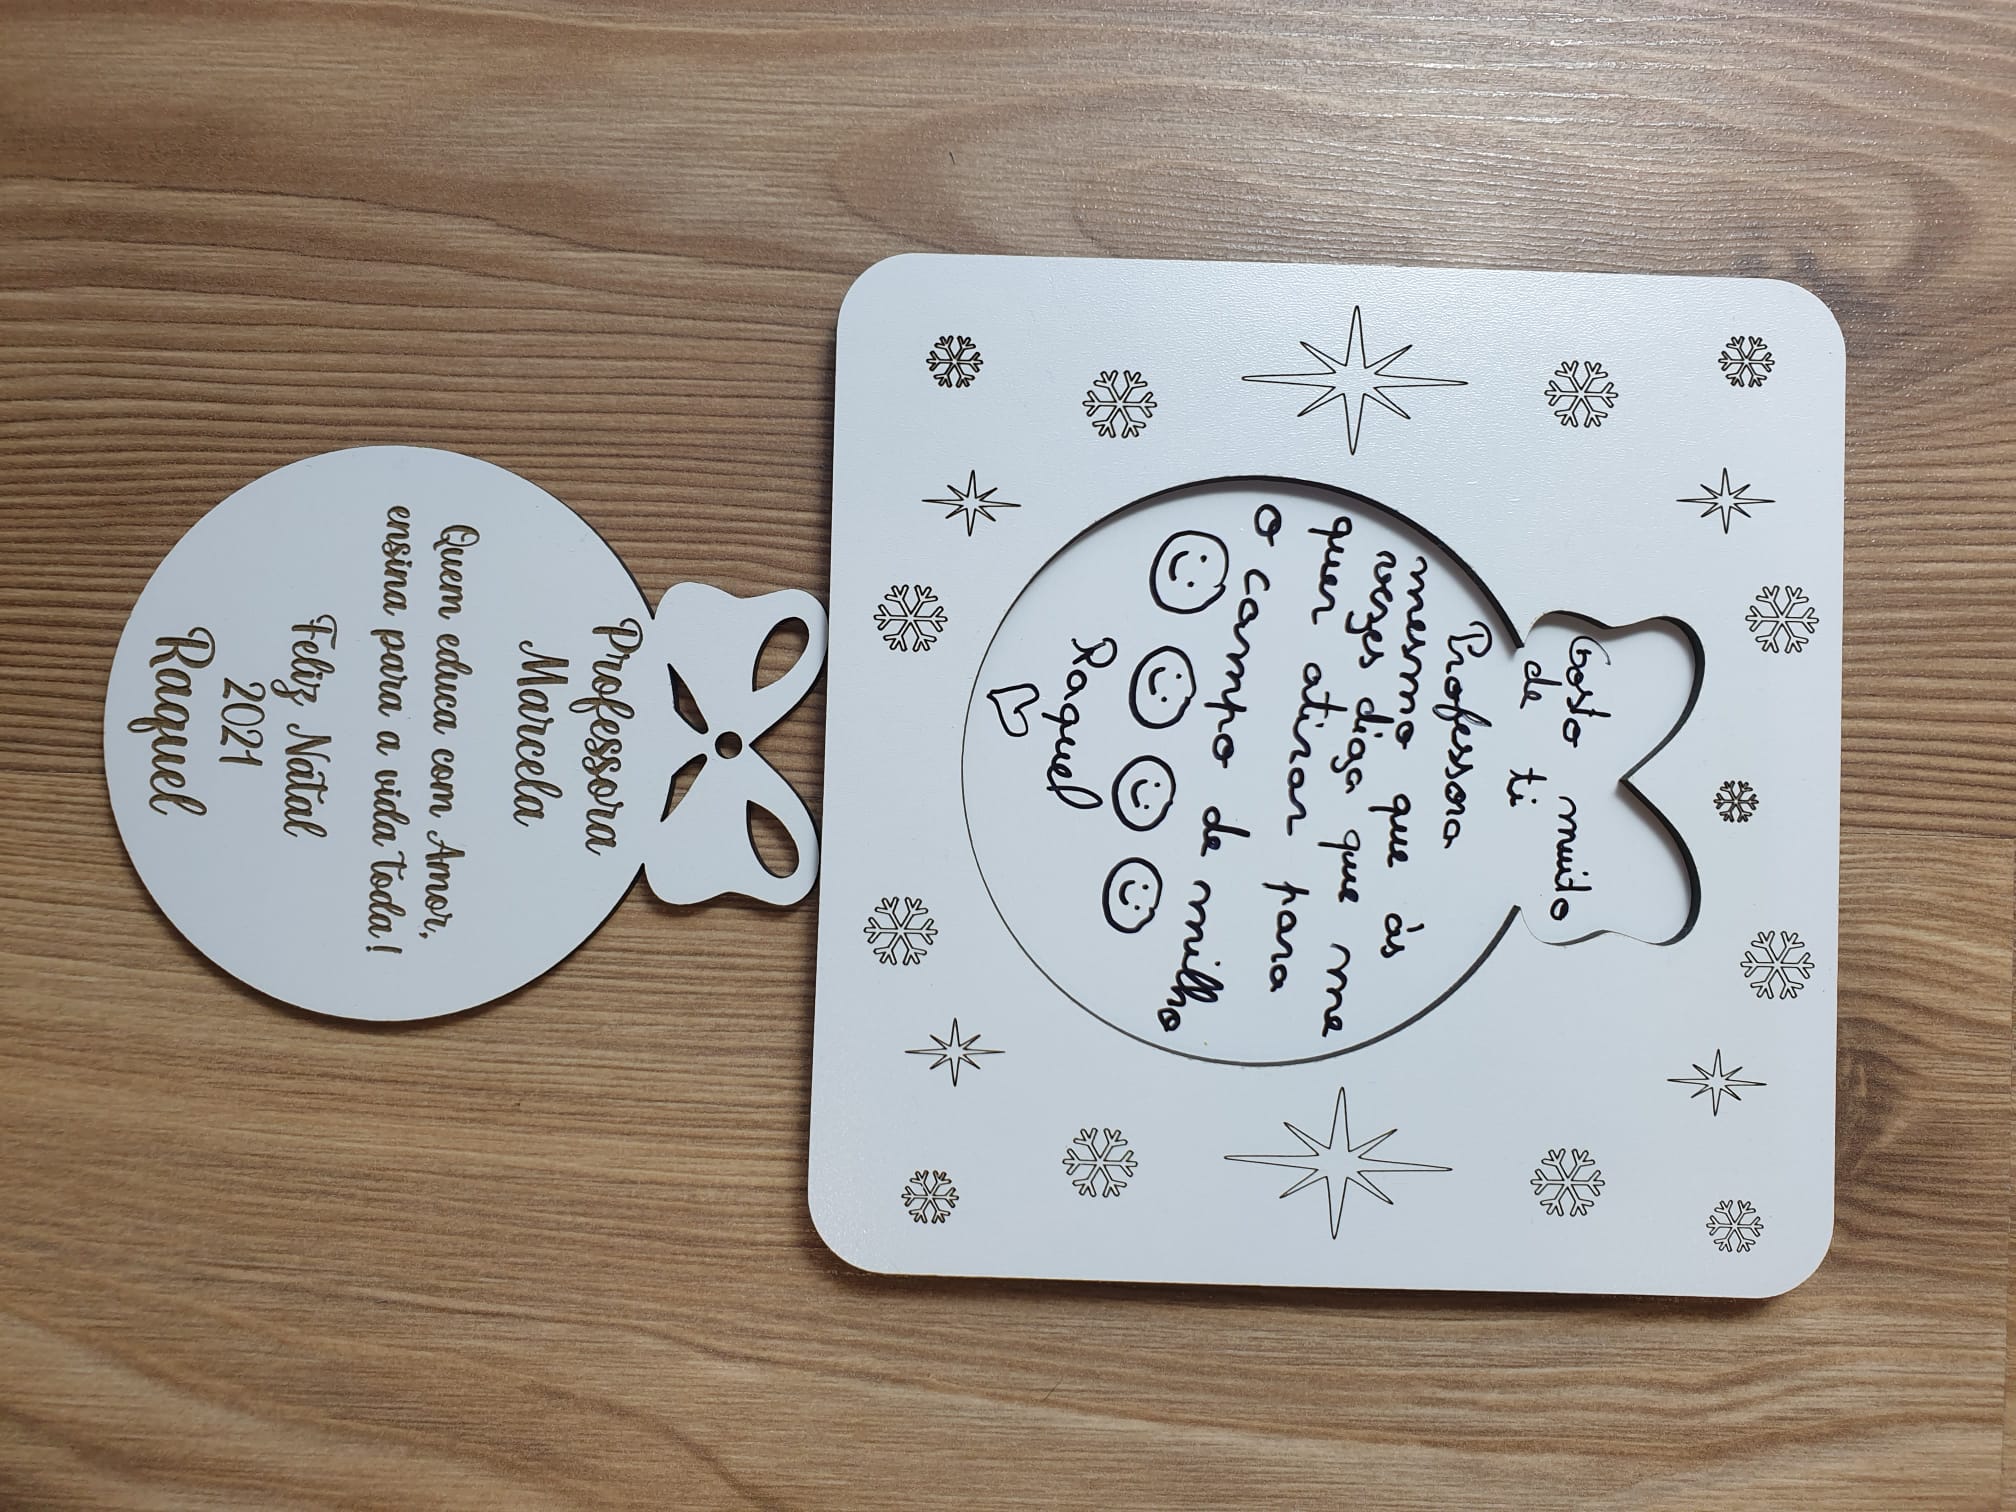 Gosto muito
de ti
Professora
mesmo que às
vezes diga que me
quer atirar para
o campo de milho
Raquel
Professora
Marcela
Quem educa com Amor,
ensina para a vida toda!
Feliz Natal
2021
Raquel